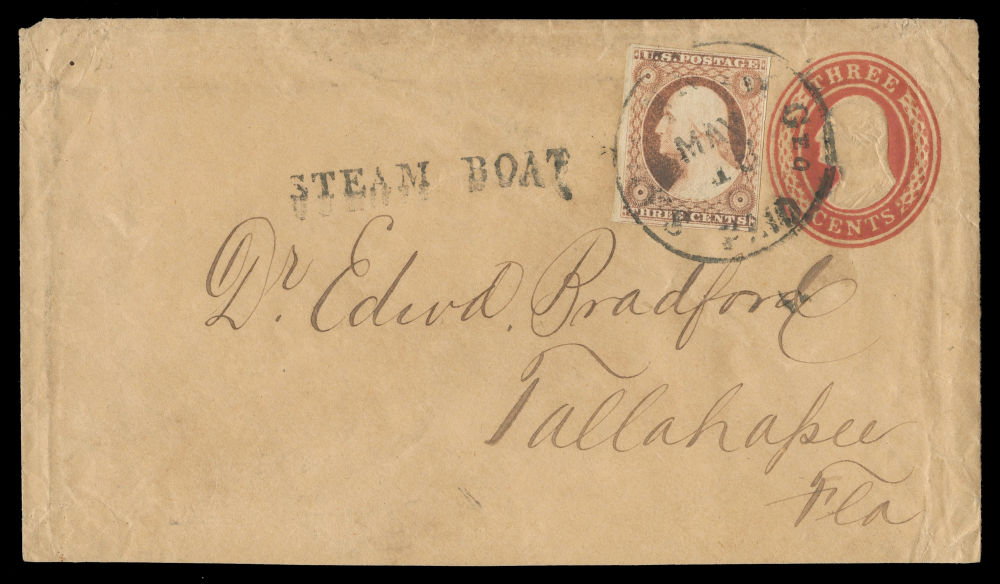 U.S. POSTAGE
THREE CENTS
THREE
CENTS
MAY
GEO
PAID
STEAM BOAT
Dr. Edwd. Bradford
Tallahaſsee
Fla